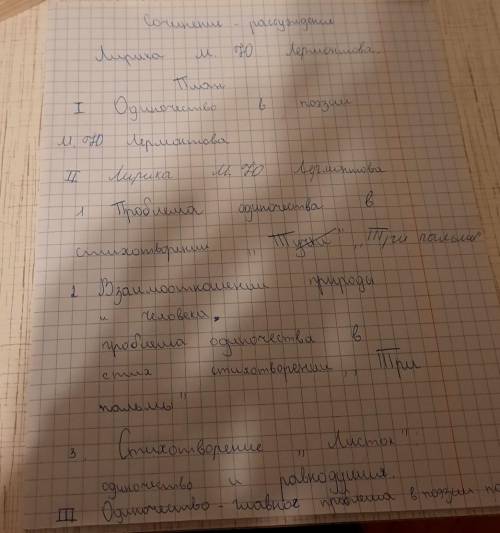 Сочинение - рассуждение
Лирика М. Ю Лермонтова.
План
I Одиночество в поэзии
М. Ю Лермонтова
II Лирика М. Ю Лермонтова
1 Проблема одиночества в
стихотворении „Тучи" „Три пальмы
2 Взаимоотношении природы
и человека,
проблема одиночества в
стих стихотворении „Три
пальмы"
3. Стихотворение „Листок"
одиночество и равнодушия.
III Одиночество - главная проблема в поэзии